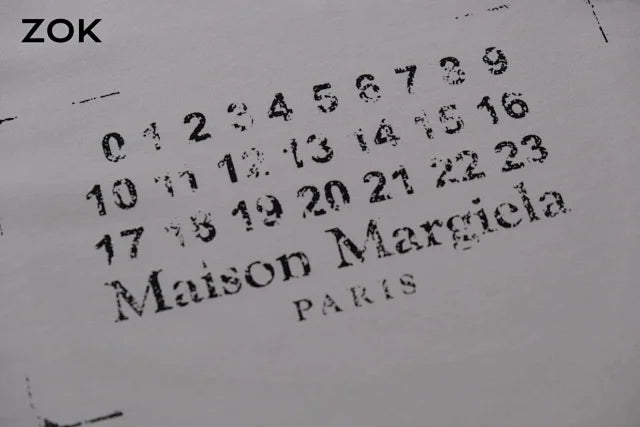 ZOK
0 1 2 3 4 5 6 7 8 9
10 11 12 13 14 15 16
17 18 19 20 21 22 23
Maison Margiela
PARIS